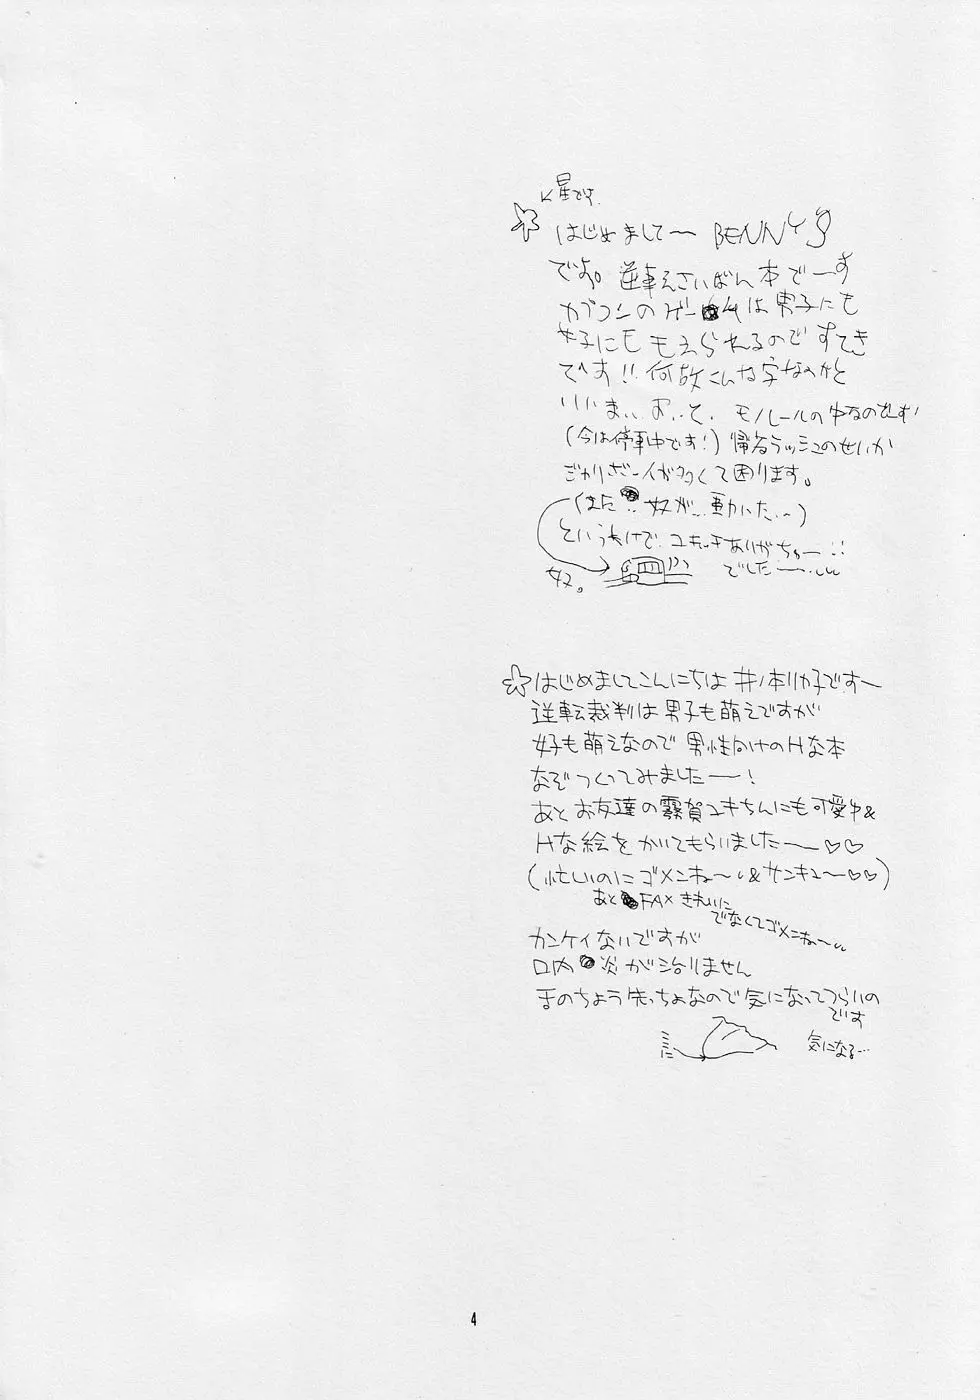 星です.
はじめまして〜 BENNY'S
です。逆転さいばん本でーす
カプコンのゲームは男子にも
女子にももえられるのですてき
です!! 何故こんな字なのかと
いいまいおいと、モノレールの中なのです!
(今は停車中です!) 帰省ラッシュのせいか
人が多くて困ります。
(また 奴が... 動いた...)
というわけで、ユキっちありがちゅー!!
でしたー
奴。
☆はじめましてこんにちは 井ノ本リカ子です〜
逆転裁判は男子も萌えですが
女子も萌えなので 男性向けのHな本
なぞつくってみましたー!
あとお友達の霧賀ユキちんにも可愛ゆ&
Hな絵をかいてもらいましたー♡♡
(忙しいのにゴメンね〜い&サンキュー♡♡)
あと FAX きれいに
でなくてゴメンね〜
カンケイないですが
口内炎が治りません
舌のちょう先っちょなので気になってつらいの
です
気になる…
4